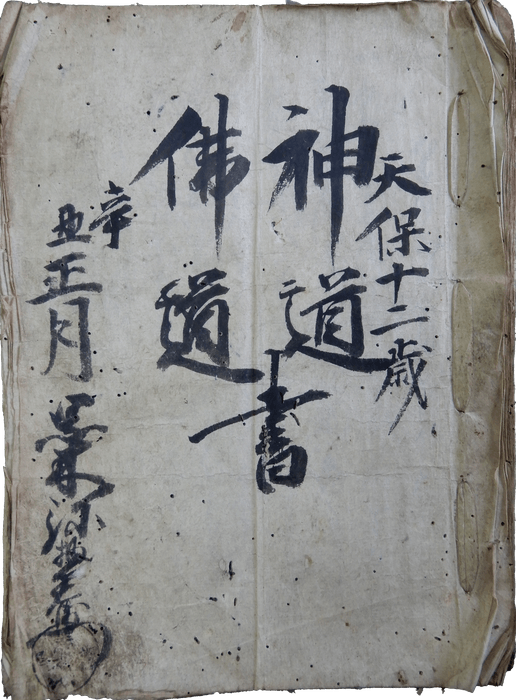 天保十二歳
神道
佛道
書
辛
丑
正月